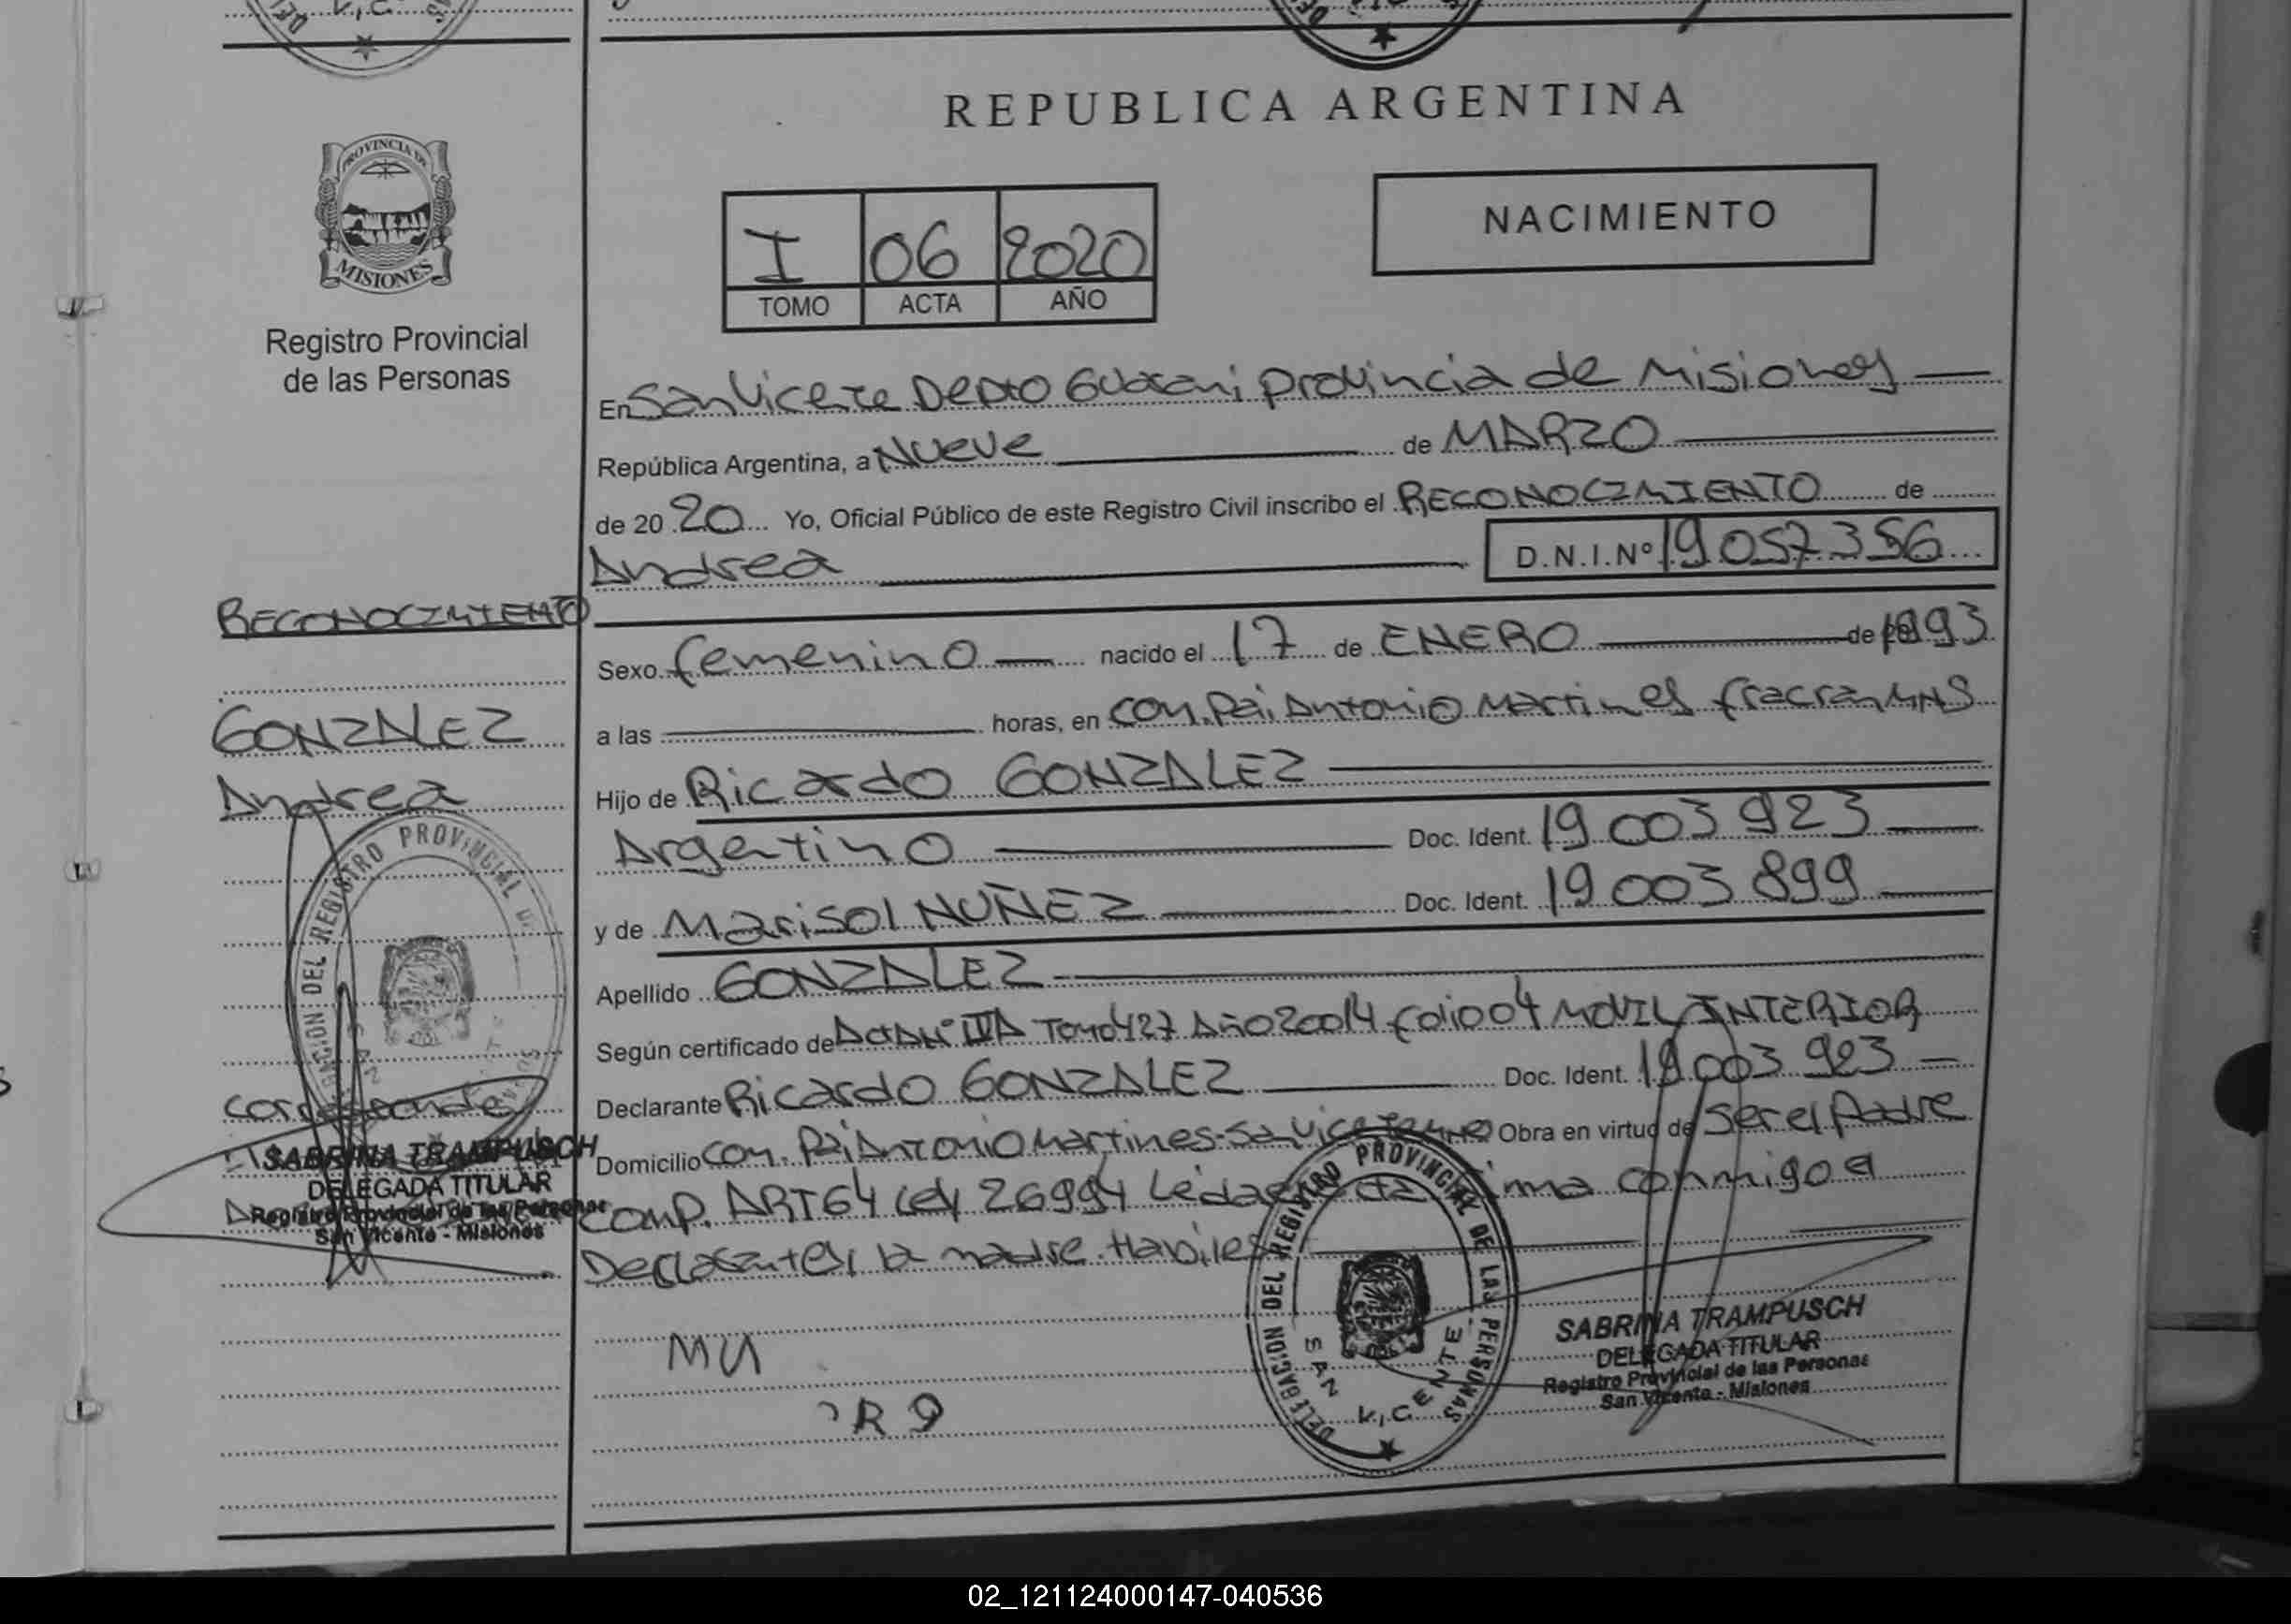 V.I.C.
DEL
REPUBLICA ARGENTINA
PROVINCIA DE
MISIONES
Registro Provincial
de las Personas
I 06 2020
TOMO ACTA AÑO
NACIMIENTO
En San Vicente Depto Guarani Provincia de Misiones
República Argentina, a Nueve de MARZO
de 20 20 Yo, Oficial Público de este Registro Civil inscribo el RECONOCIMIENTO de
Andrea D.N.I.Nº 19057356
RECONOCIMIENTO
Sexo femenino nacido el 17 de ENERO de 1993
GONZALEZ
a las horas, en Com. Pai Antonio Martines fracran MNS
Andrea
Hijo de Ricardo GONZALEZ
Argentino Doc. Ident. 19003923
y de Marisol NUÑEZ Doc. Ident. 19003899
Apellido GONZALEZ
Según certificado de Acta Nº IIIA Tomo 427 Año 20014 folio 04 MOVIL INTERIOR
Declarante Ricardo GONZALEZ Doc. Ident. 19003923
Domicilio Com. Pai Antonio Martines- Obra en virtud de Ser el Padre
Comp. ART 64 Ley 26994 Leida conmigo el
Declarante, la madre Habiles
DELEGACION DEL REGISTRO PROVINCIAL DE
SAN
SABRINA TRAMPUSCH
DELEGADA TITULAR
Registro Provincial de las Personas
San Vicente - Misiones
MN
R 9
DELEGACION DEL REGISTRO PROVINCIAL DE LAS PERSONAS
SAN VICENTE
V.I.C.
SABRINA TRAMPUSCH
DELEGADA TITULAR
Registro Provincial de las Personas
San Vicente - Misiones
02_121124000147-040536